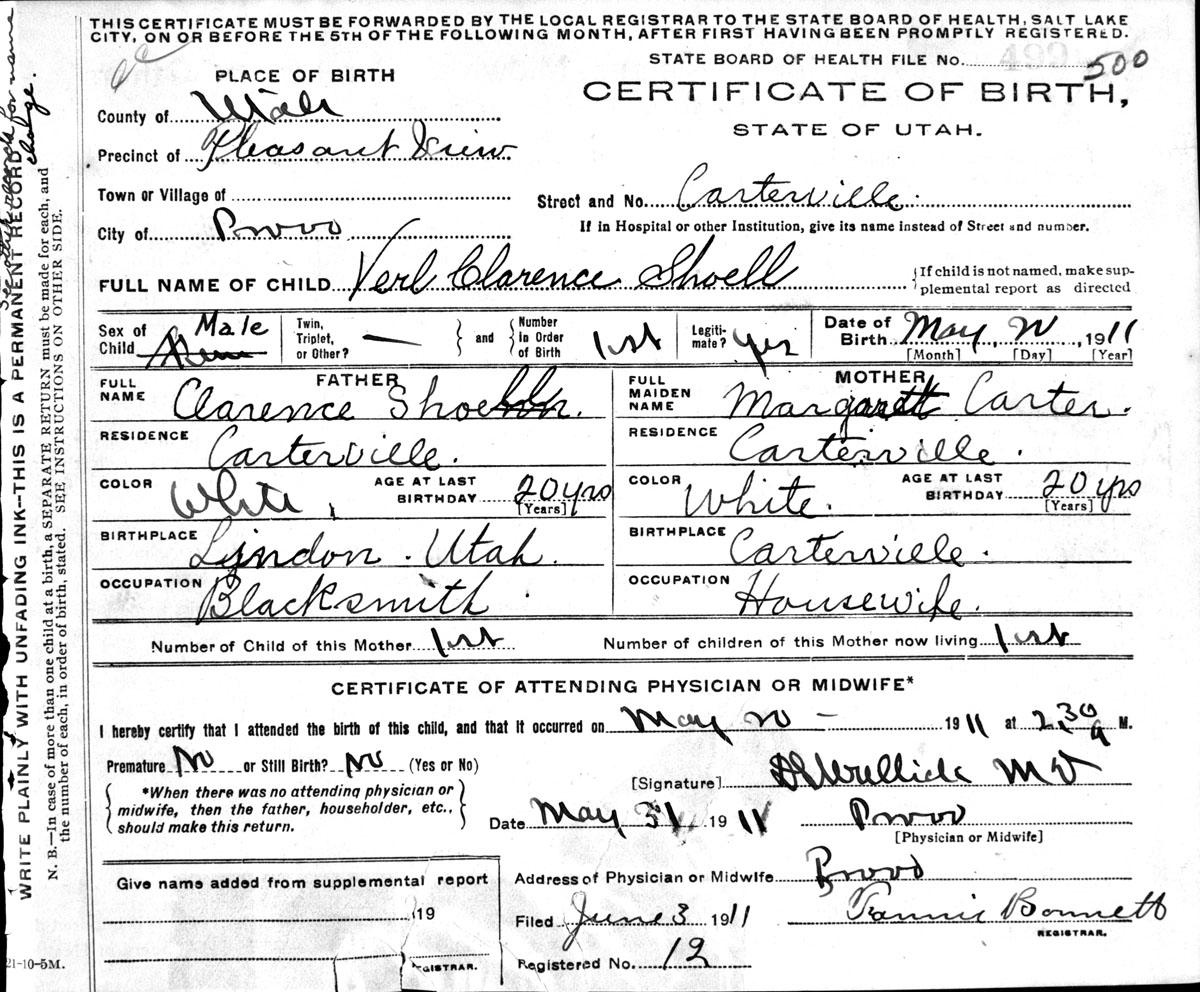 THIS CERTIFICATE MUST BE FORWARDED BY THE LOCAL REGISTRAR TO THE STATE BOARD OF HEALTH, SALT LAKE
CITY, ON OR BEFORE THE 5TH OF THE FOLLOWING MONTH, AFTER FIRST HAVING BEEN PROMPTLY REGISTERED.
STATE BOARD OF HEALTH FILE No. 499 500
PLACE OF BIRTH
CERTIFICATE OF BIRTH,
STATE OF UTAH.
County of Utah
Precinct of Pleasant View
Town or Village of
Street and No. Carterville.
City of Provo
If in Hospital or other Institution, give its name instead of Street and number.
FULL NAME OF CHILD Verl Clarence Shoell
{If child is not named, make sup-
plemental report as directed
Sex of Child Male
Twin, Triplet, or Other? —
and
Number in Order of Birth 1st
Legiti-mate? yes
Date of Birth May, , 1911
[Month] [Day] [Year]
FATHER
FULL NAME Clarence
RESIDENCE Carterville.
COLOR White,
AGE AT LAST BIRTHDAY 20 yrs
[Years]
BIRTHPLACE Lindon. Utah.
OCCUPATION Blacksmith
MOTHER
FULL MAIDEN NAME Margarett Carter.
RESIDENCE Carterville.
COLOR White.
AGE AT LAST BIRTHDAY 20 yrs
[Years]
BIRTHPLACE Carterville.
OCCUPATION Housewife.
Number of Child of this Mother 1st
Number of children of this Mother now living 1st
CERTIFICATE OF ATTENDING PHYSICIAN OR MIDWIFE*
I hereby certify that I attended the birth of this child, and that it occurred on May — 1911 at 2,30 a M.
Premature No or Still Birth? No (Yes or No)
*When there was no attending physician or
midwife, then the father, householder, etc.,
should make this return.
[Signature] M D
Date May 31 1911
Provo
[Physician or Midwife]
Give name added from supplemental report
19
REGISTRAR.
Address of Physician or Midwife Provo
Filed June 3 1911
Fannie Bonnett
REGISTRAR.
Registered No. 12
21-10-5M.
WRITE PLAINLY WITH UNFADING INK—THIS IS A PERMANENT RECORD
N. B.—In case of more than one child at a birth, a SEPARATE RETURN must be made for each, and
the number of each, in order of birth, stated. SEE INSTRUCTIONS ON OTHER SIDE.
for name
change.